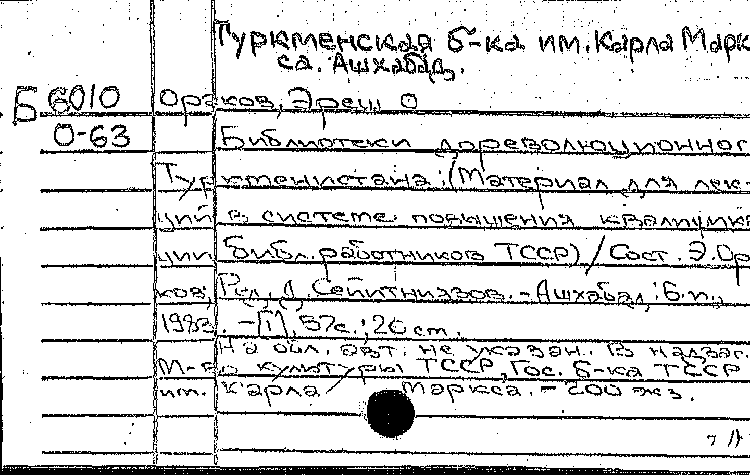 Туркменская б-ка им. Карла Марк
са. Ашхабад.
Б 6010 Оразков, Эреш О
О-63 Библиотеки дореволюционног
Туркменистана: (Материал для лек-
ций в системе повышения квалифика
ции библ. работников ТССР) / Сост. Э. Ор
ков; Ред. Д. Сейитниязов. - Ашхабад: Б.и.,
1983. - [1], 57с.; 20 см.
На обл. авт. не указан. В надзаг.
М-во культуры ТССР, Гос. б-ка ТССР
им. Карла Маркса. - 200 экз.